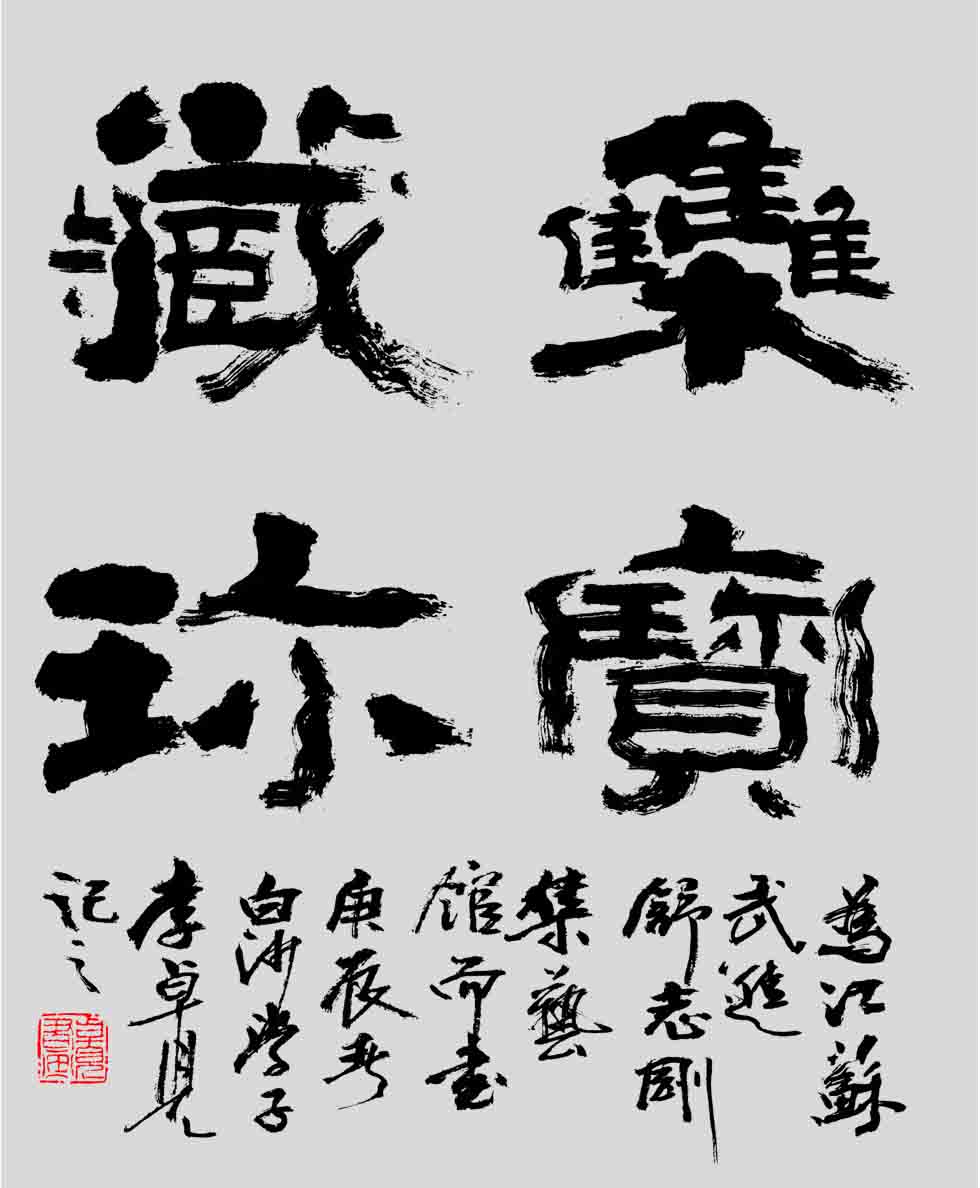 雧寶
藏珍
為江蘇
武進
舒志剛
集藝
館而書
庚辰春
白沙學子
李卓見
記之